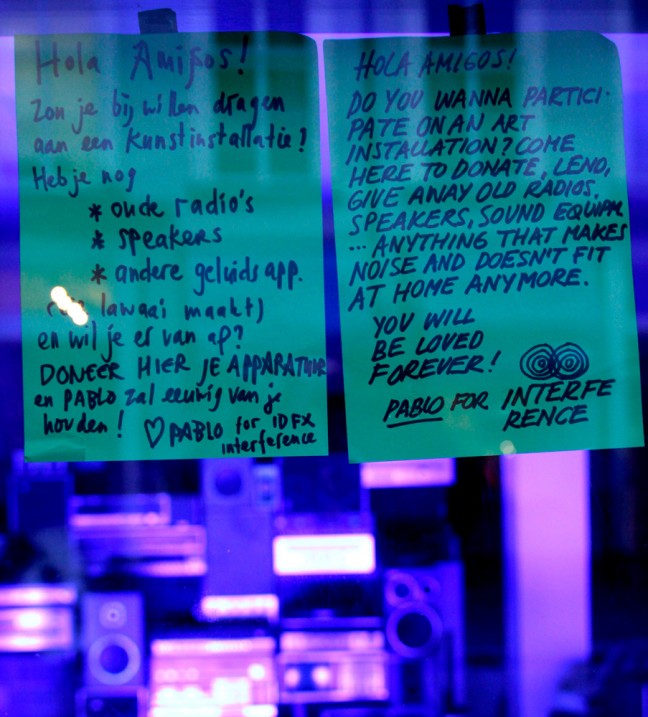 Hola Amigos!
Zou je bij willen dragen
aan een kunstinstallatie?
Heb je nog
* oude radio's
* speakers
* andere geluidsapp.
lawaai maakt)
en wil je er van af?
DONEER HIER JE APPARATUUR
en PABLO zal eeuwig van je
houden! ♡ PABLO for IDFX
interference
HOLA AMIGOS!
DO YOU WANNA PARTICI-
PATE ON AN ART
INSTALLATION? COME
HERE TO DONATE, LEND,
GIVE AWAY OLD RADIOS,
SPEAKERS, SOUND EQUIPM
... ANYTHING THAT MAKES
NOISE AND DOESN'T FIT
AT HOME ANYMORE.
YOU WILL
BE LOVED
FOREVER!
PABLO FOR INTERFE
RENCE